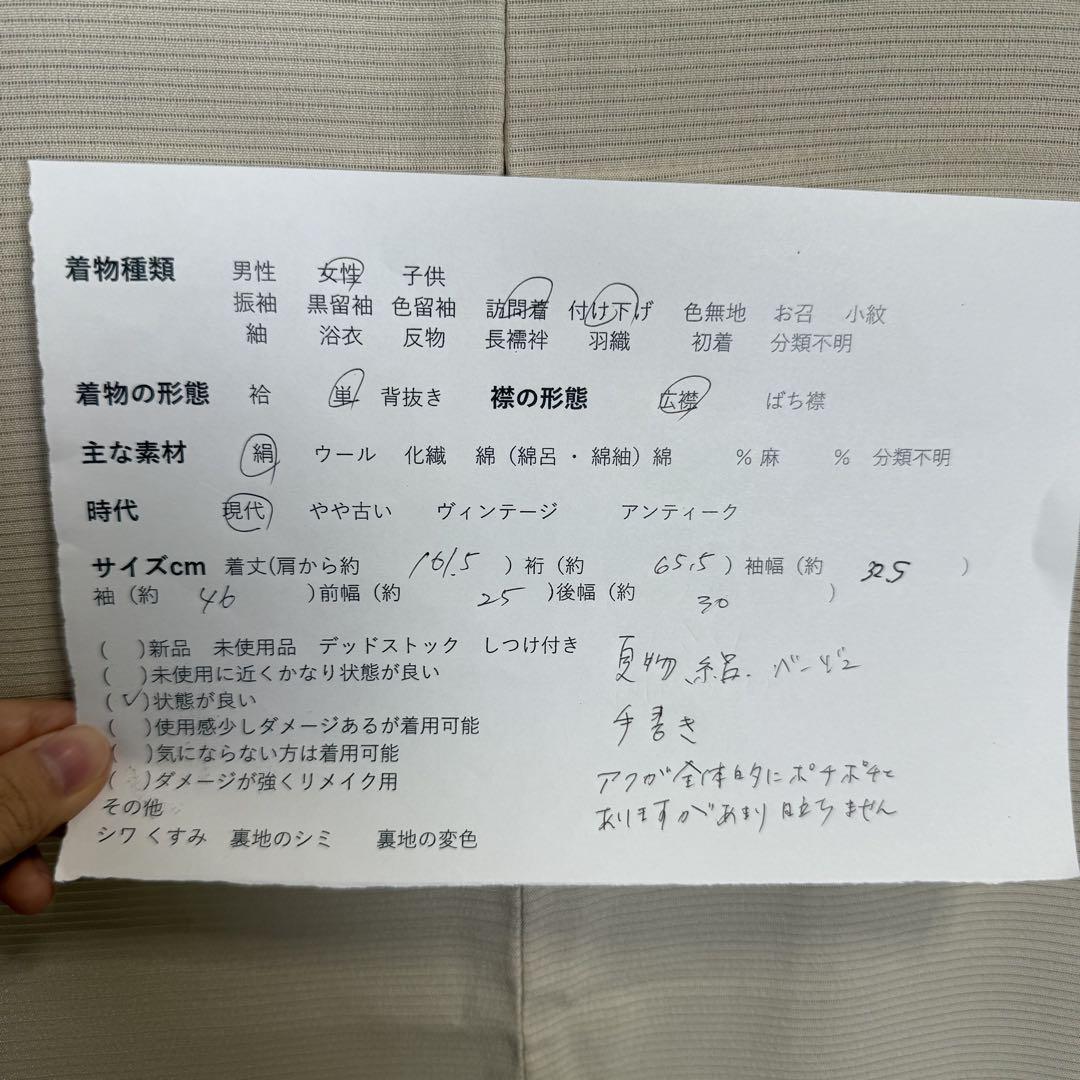 着物種類 男性 女性 子供
振袖 黒留袖 色留袖 訪問着 付け下げ 色無地 お召 小紋
紬 浴衣 反物 長襦袢 羽織 初着 分類不明
着物の形態 袷 単 背抜き 襟の形態 広襟 ばち襟
主な素材 絹 ウール 化繊 綿（綿呂・綿紬）綿 %麻 % 分類不明
時代 現代 やや古い ヴィンテージ アンティーク
サイズcm 着丈(肩から約 161.5 ）裄（約 65.5 ）袖幅（約 32.5 ）
袖（約 46 )前幅（約 25 )後幅（約 30 ）
( )新品 未使用品 デッドストック しつけ付き
( )未使用に近くかなり状態が良い
(✓)状態が良い
( )使用感少しダメージあるが着用可能
( )気にならない方は着用可能
( )ダメージが強くリメイク用
その他
シワ くすみ 裏地のシミ 裏地の変色
夏物 絽 ベージュ
手書き
アクが全体的にポチポチと
ありますがあまり目立ちません